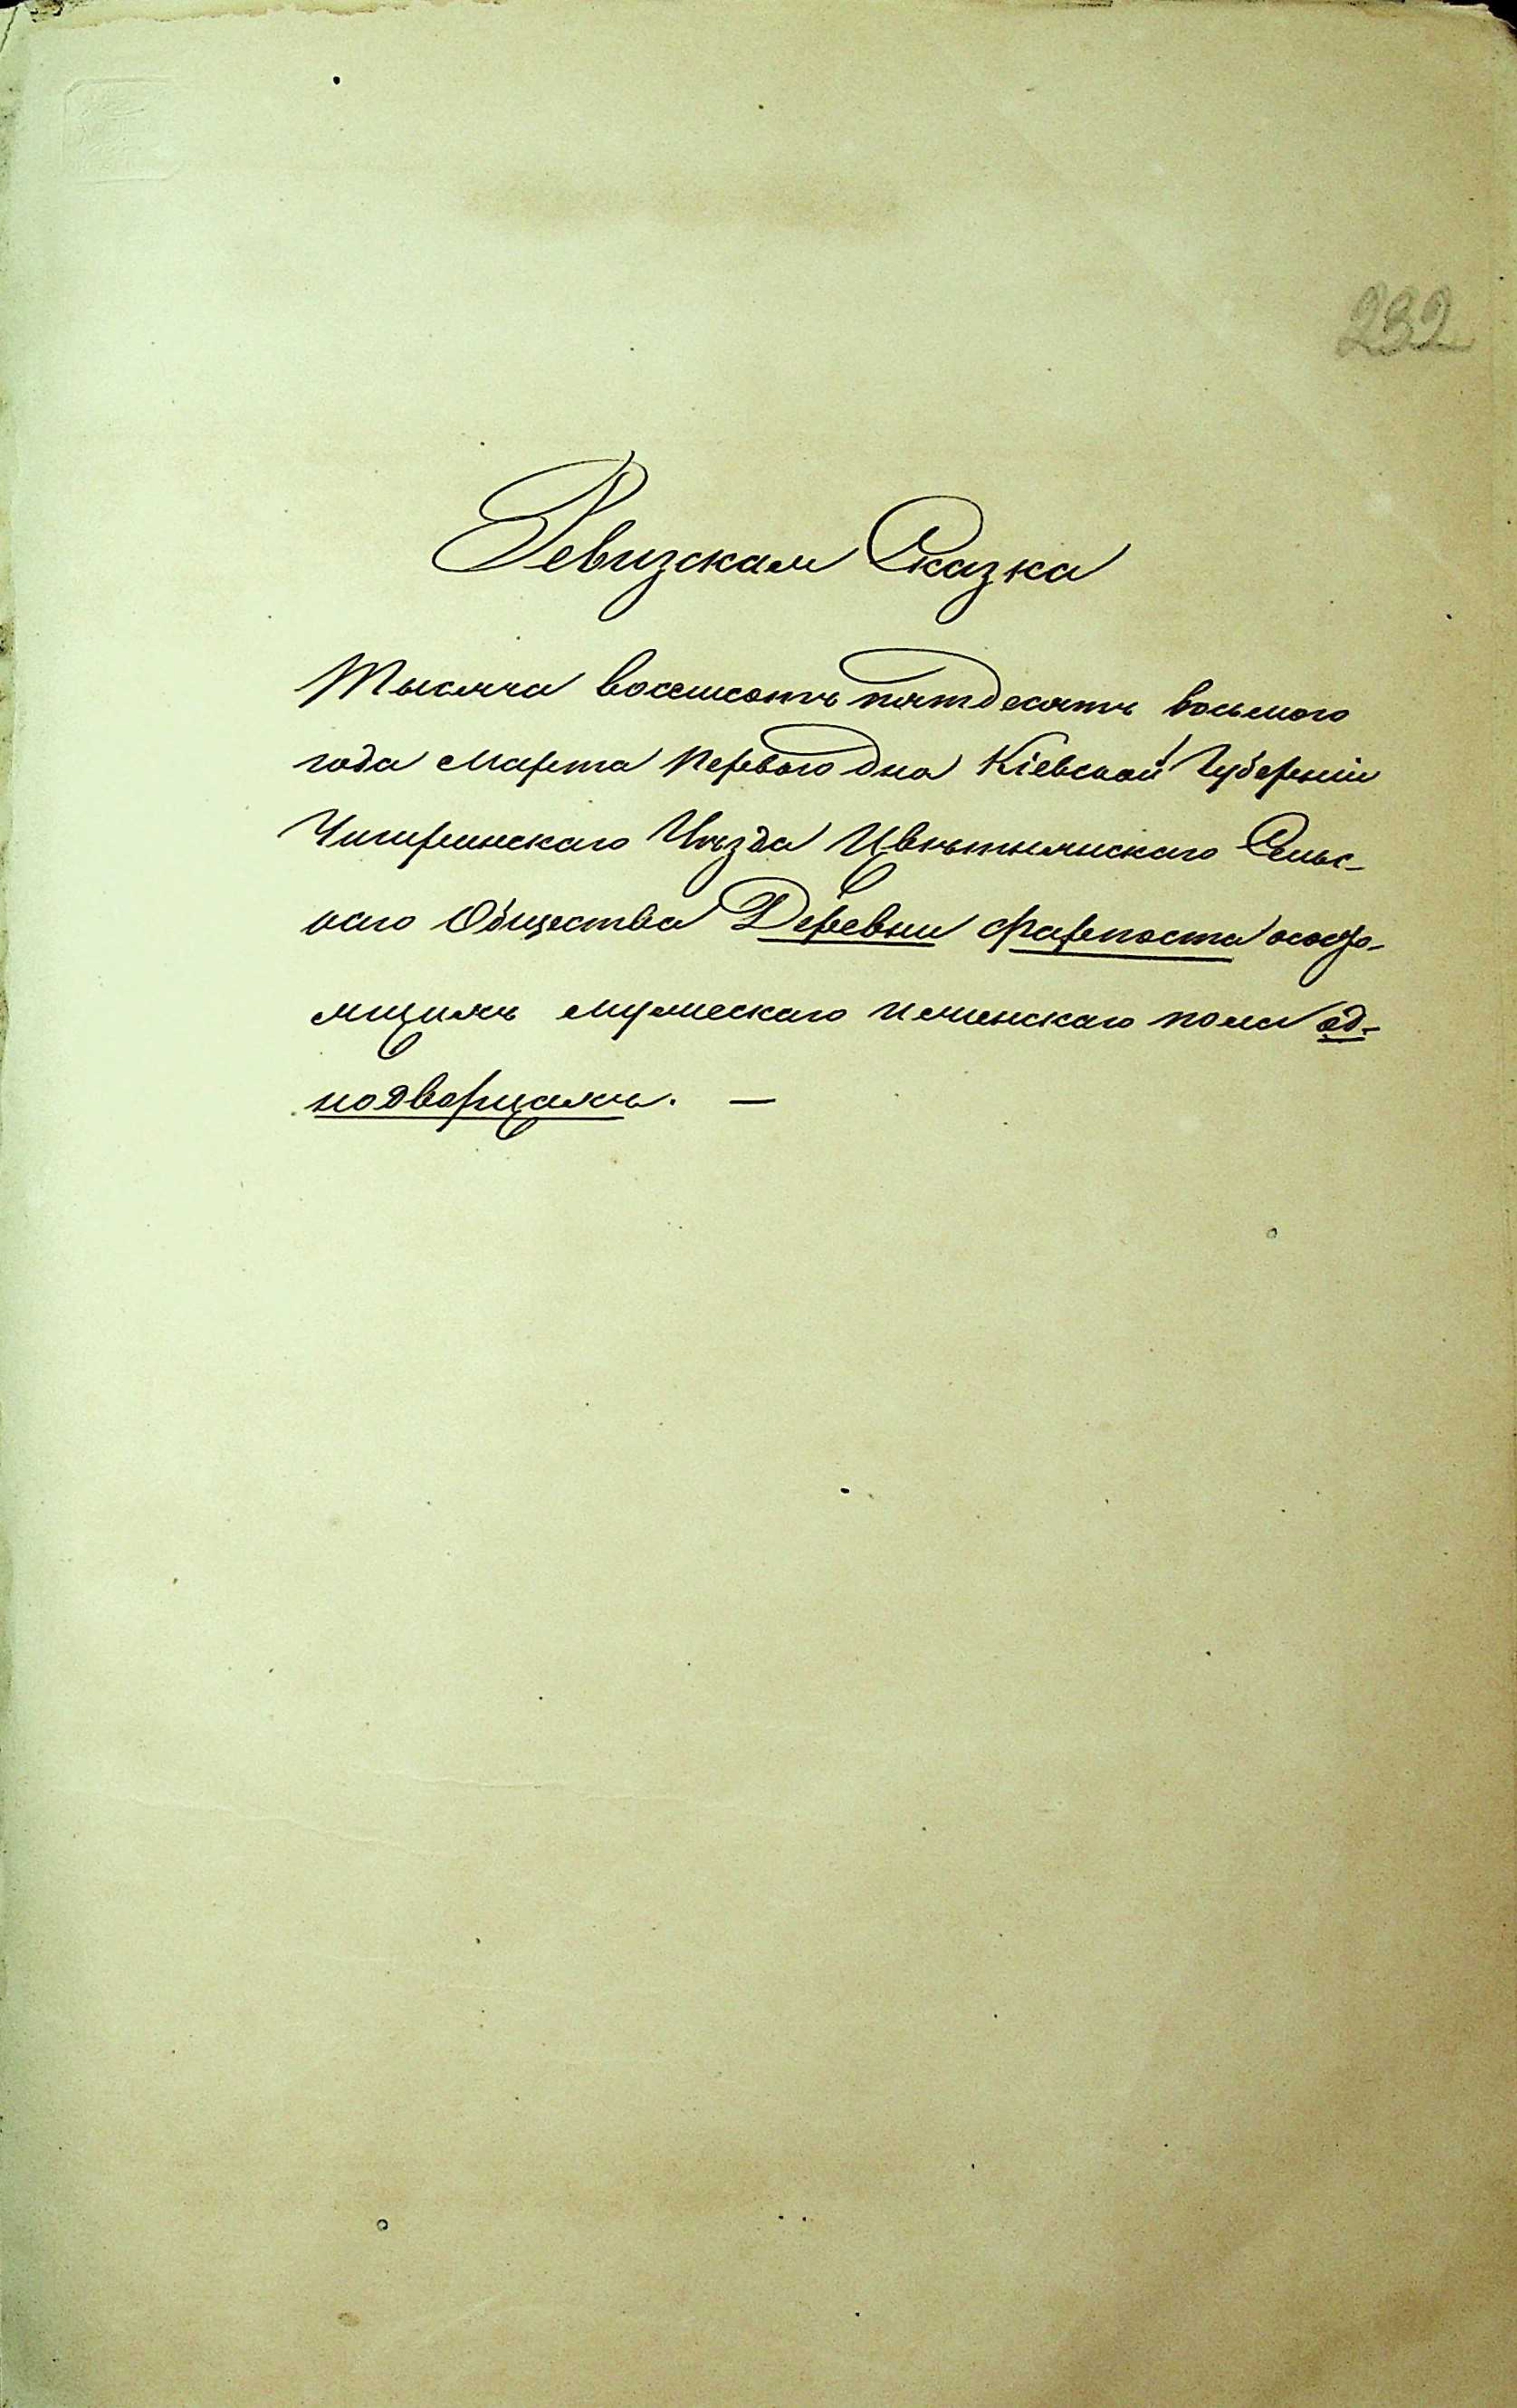 232
Ревизская Сказка
Тысяча восемсотъ пятдесятъ восьмого
года Марта Первого дна Кіевской Губерніи
Чигиринскаго Уѣзда Цвѣтнянскаго Сельс-
каго Общества Деревни Фарпоста осостоя-
мужескаго и женскаго пола од-
нодворцахъ. —